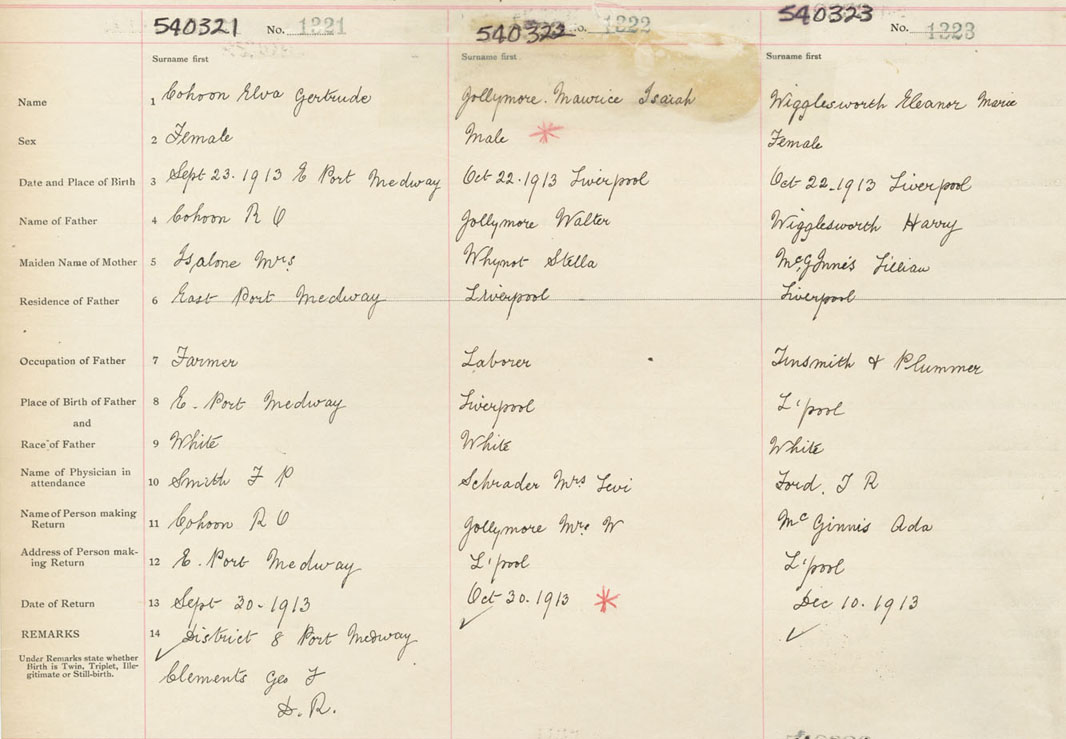 540321 No. 1321 540322 No. 1322 540323 No. 1323
Surname first Surname first Surname first
Name 1 Cohoon Elva Gertrude Jollymore. Maurice Isaiah Wigglesworth Eleanor Marie
Sex 2 Female Male * Female
Date and Place of Birth 3 Sept 23. 1913 E Port Medway Oct 22. 1913 Liverpool Oct 22-1913 Liverpool
Name of Father 4 Cohoon R O Jollymore Walter Wigglesworth Harry
Maiden Name of Mother 5 Mrs Whynot Stella McGinnis Lillian
Residence of Father 6 East Port Medway Liverpool Liverpool
Occupation of Father 7 Farmer Laborer Tinsmith & Plummer
Place of Birth of Father 8 E. Port Medway Liverpool L'pool
and
Race of Father 9 White White White
Name of Physician in
attendance 10 Smith F P Schrader Mrs Levi Ford. T R
Name of Person making
Return 11 Cohoon R O Jollymore Mrs W McGinnis Ada
Address of Person mak-
ing Return 12 E. Port Medway L'pool L'pool
Date of Return 13 Sept 30-1913 Oct 30. 1913 * Dec 10. 1913
REMARKS 14 District 8 Port Medway
Under Remarks state whether
Birth is Twin, Triplet, Ille-
gitimate or Still-birth.
Clements Geo F
D. R.